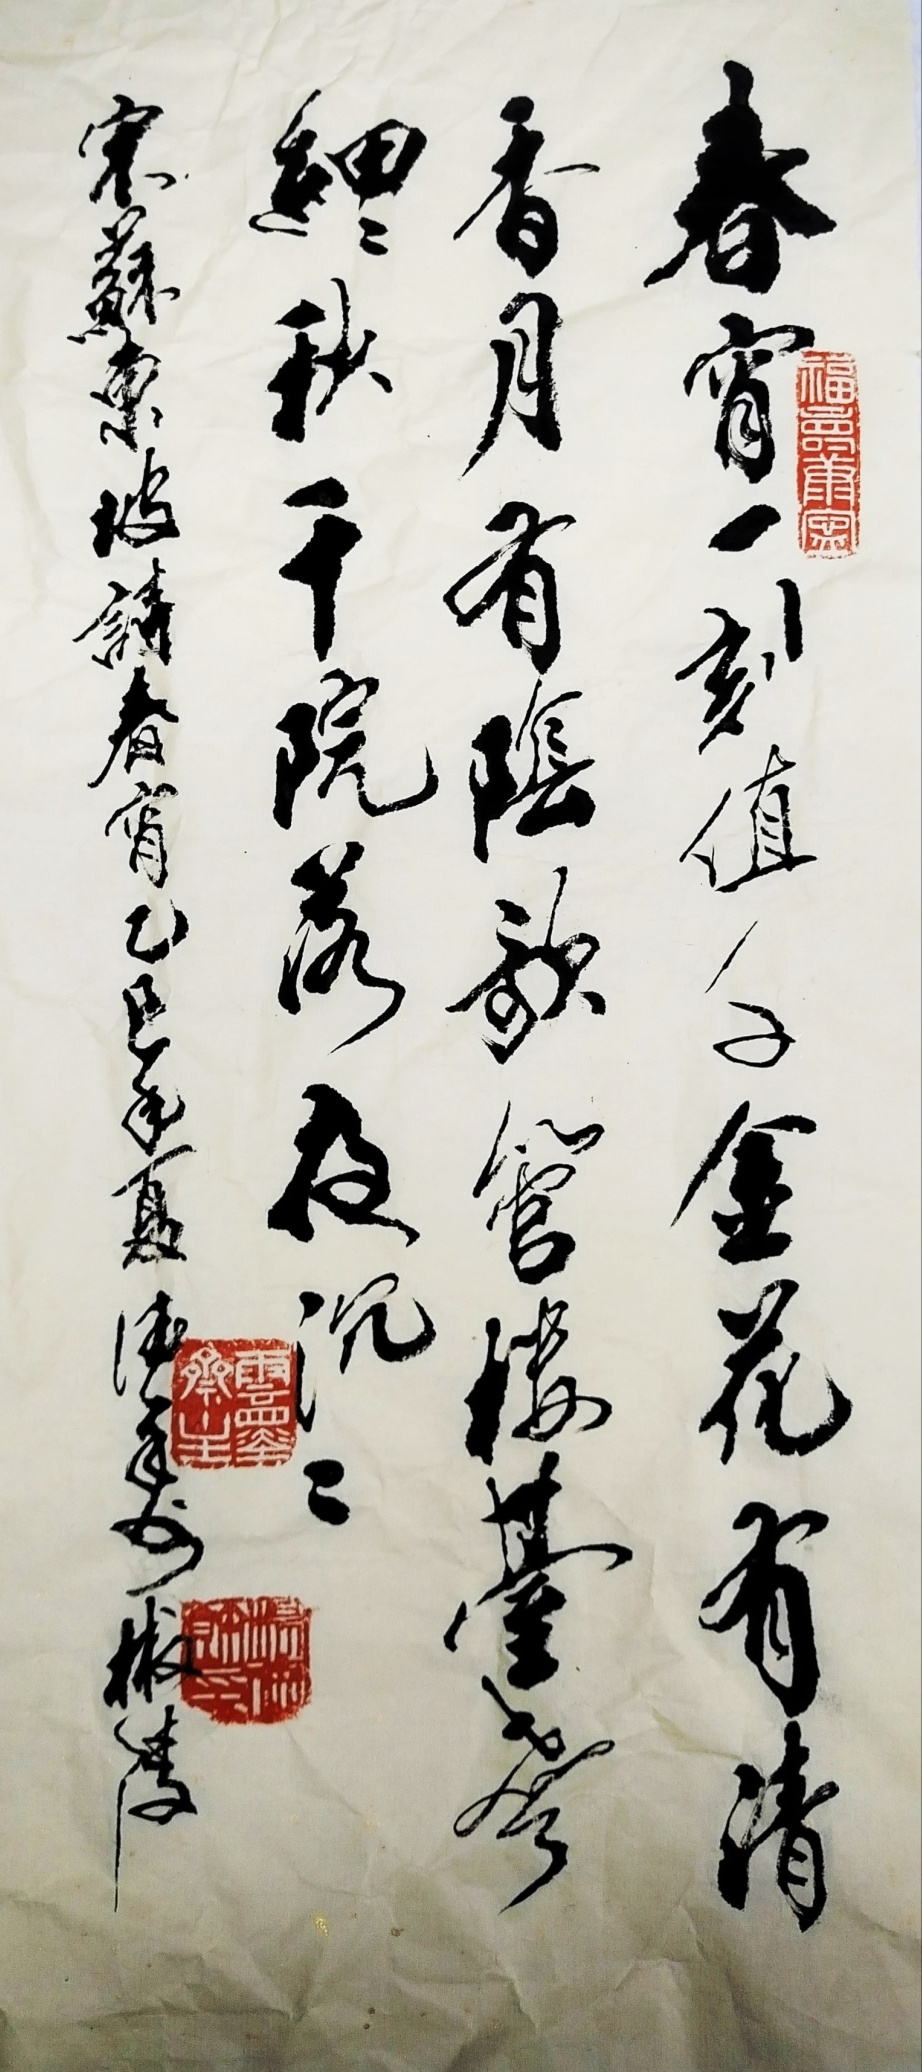 春宵一刻值千金花有清
香月有陰歌管樓臺聲
細〻秋千院落夜沉〻
宋蘇東坡詩春宵乙巳年夏
福壽康寧